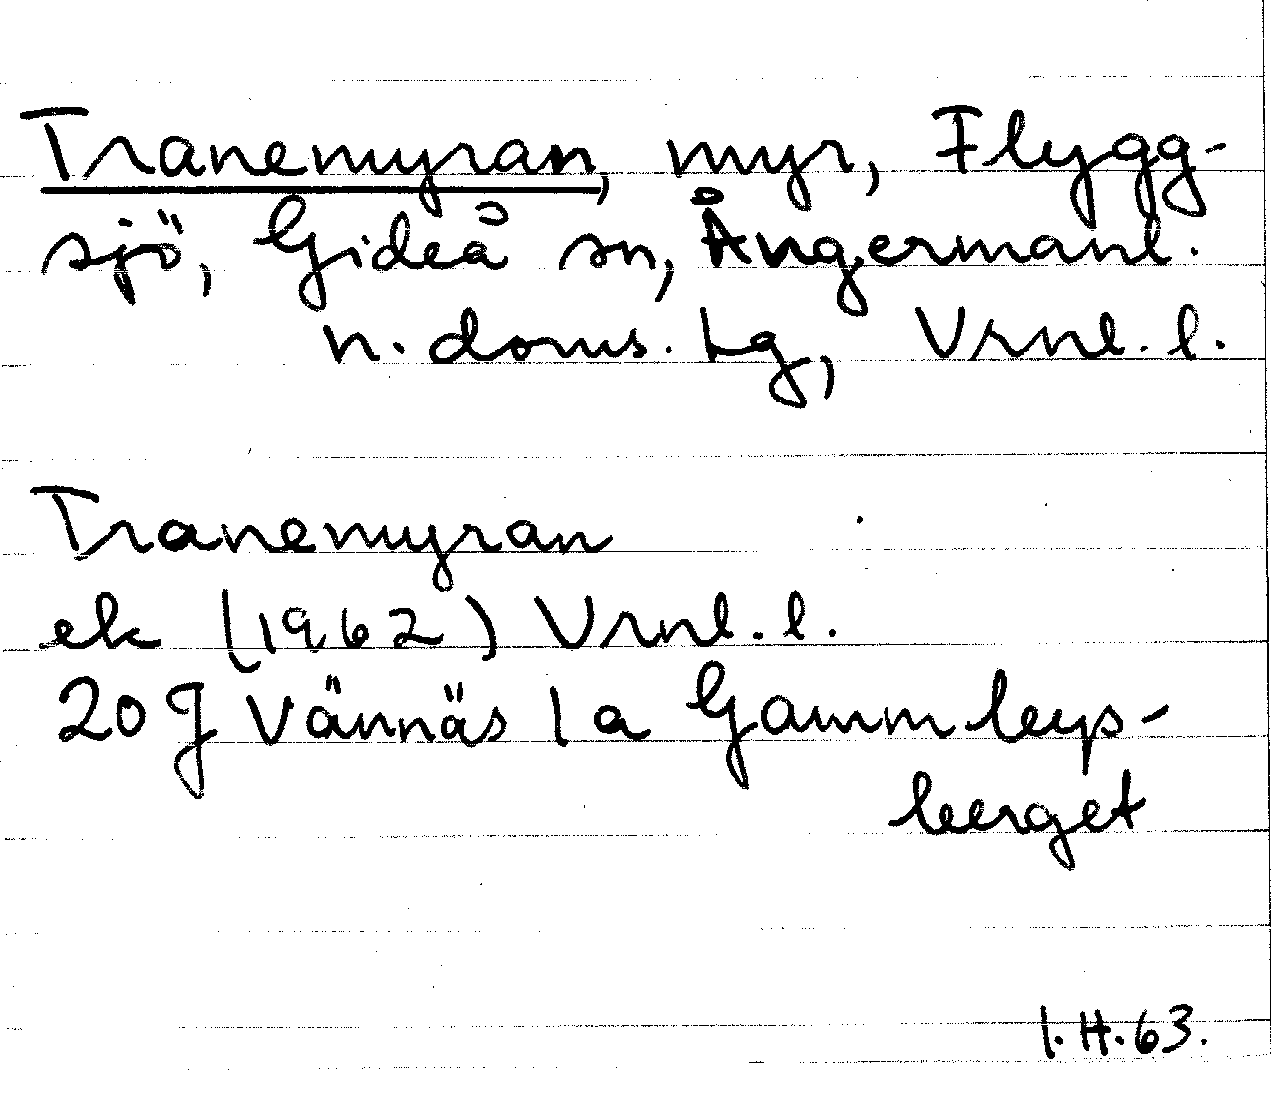 Tranemyran, myr, Flygg-
sjö, Gideå sn, Ångermanl.
n. doms. lg, Vrnl. l.
Tranemyran
ek (1962) Vrnl. l.
20 J Vännäs 1 a Gammleys-
berget
I. H. 63.